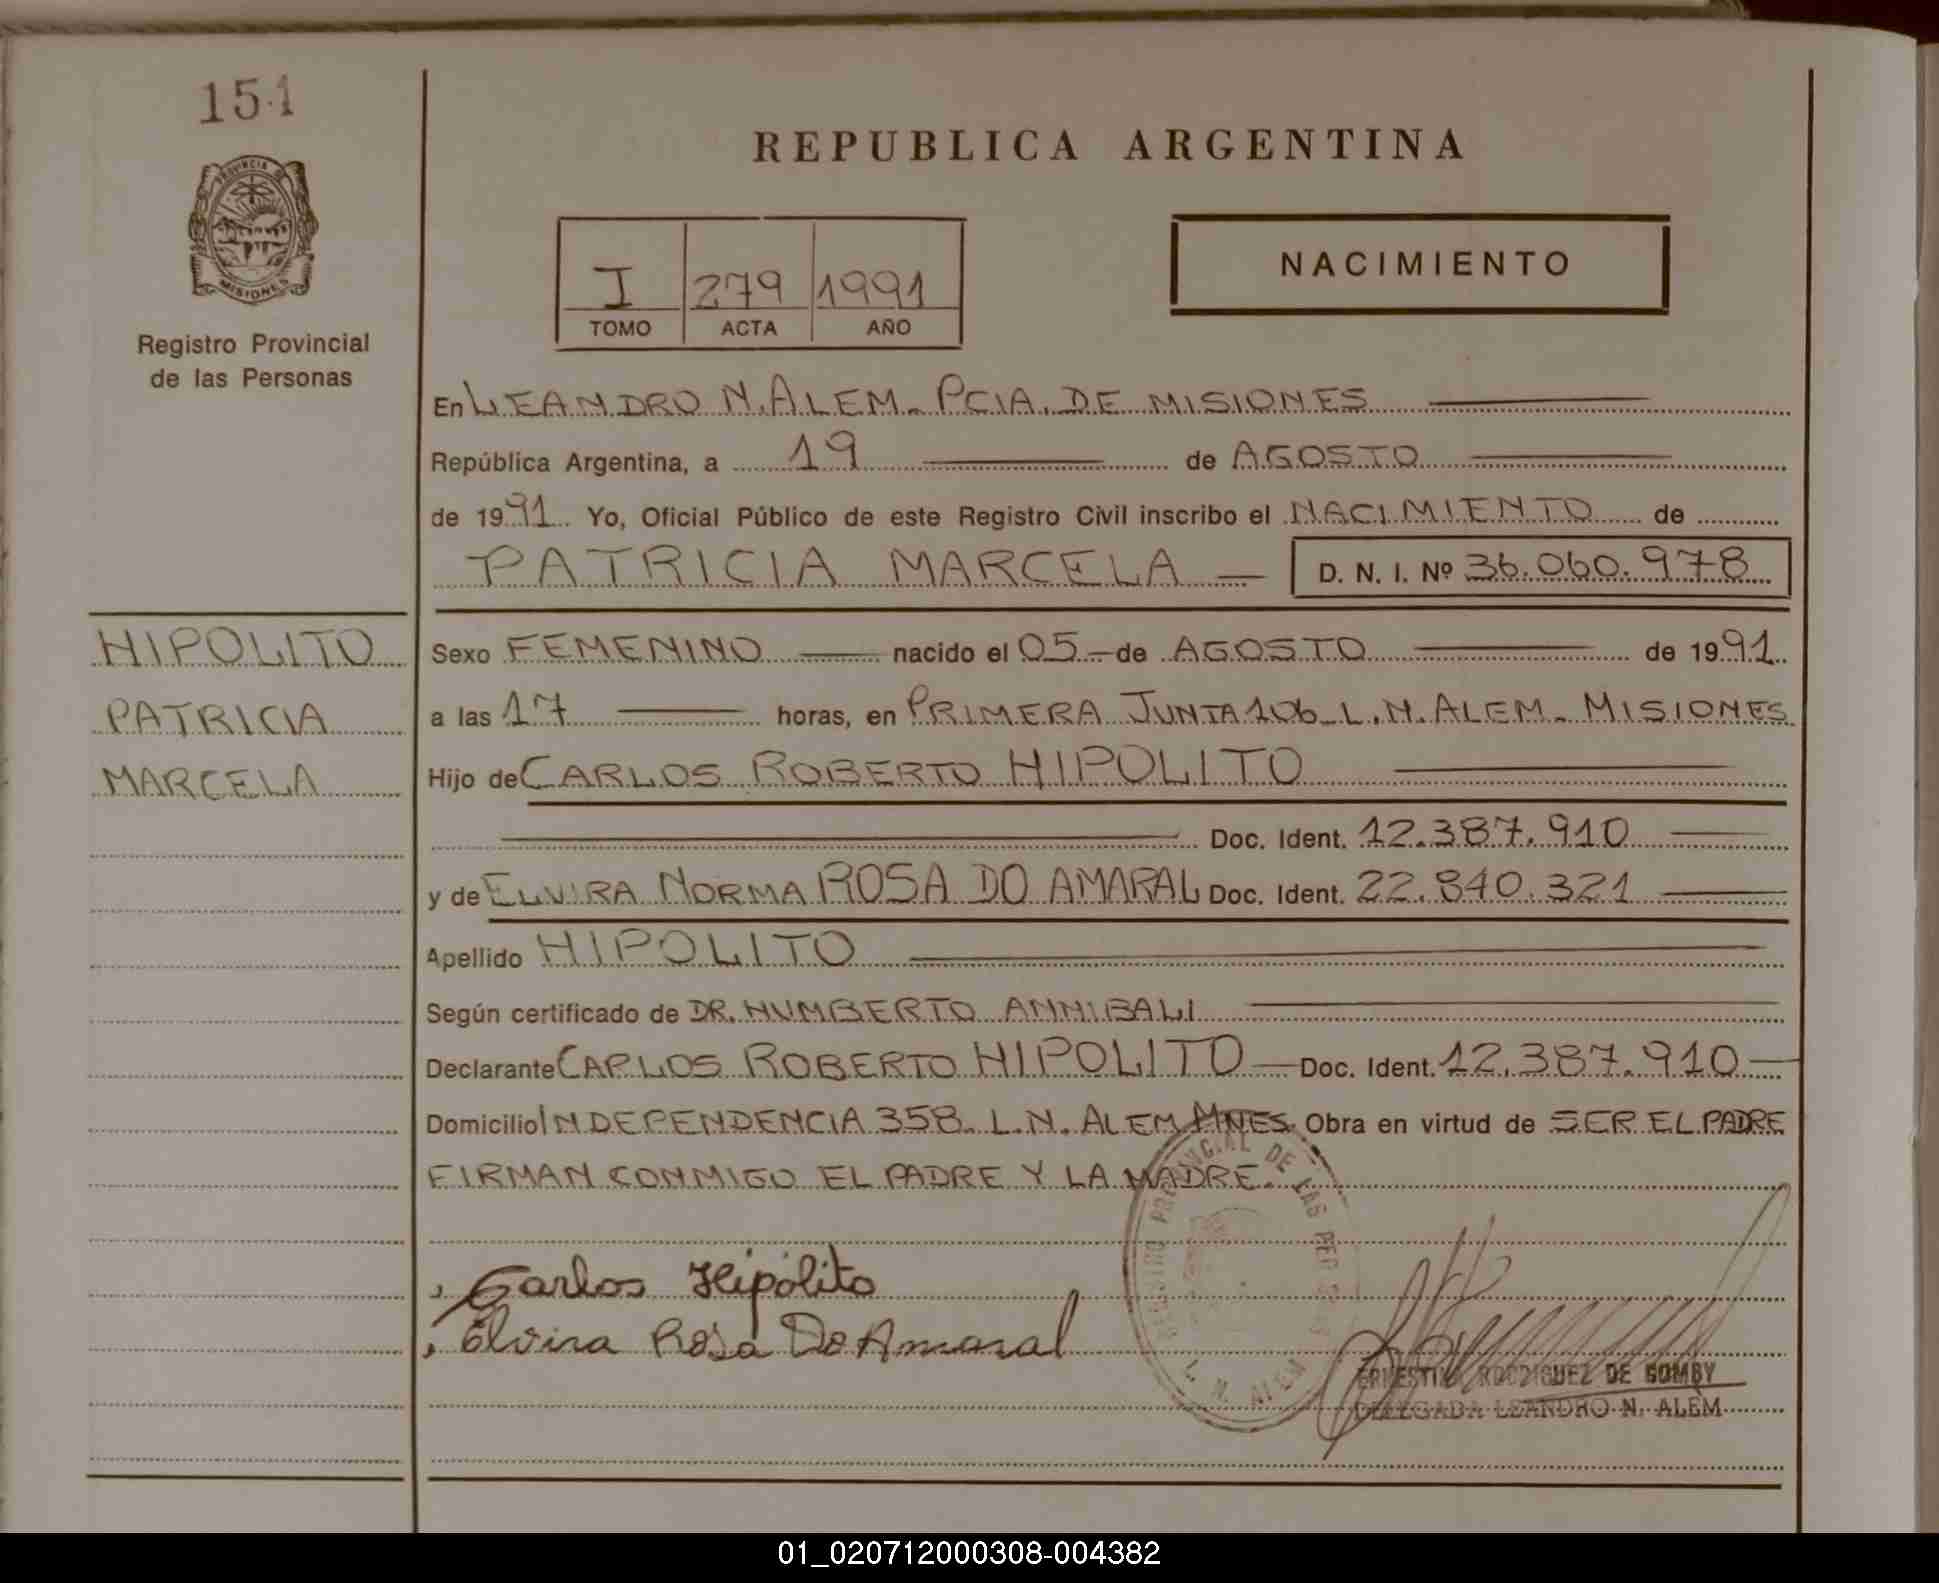 151
PROVINCIA DE
MISIONES
Registro Provincial
de las Personas
REPUBLICA ARGENTINA
I 279 1991
TOMO ACTA AÑO
NACIMIENTO
En LEANDRO N. ALEM. PCIA. DE MISIONES
República Argentina, a 19 de AGOSTO
de 1991 Yo, Oficial Público de este Registro Civil inscribo el NACIMIENTO de
PATRICIA MARCELA — D. N. I. Nº 36.060.978
HIPOLITO
PATRICIA
MARCELA
Sexo FEMENINO — nacido el 05 — de AGOSTO — de 1991
a las 17 — horas, en PRIMERA JUNTA 106 L.N. ALEM. MISIONES
Hijo de CARLOS ROBERTO HIPOLITO
Doc. Ident. 12.387.910
y de ELVIRA NORMA ROSA DO AMARAL Doc. Ident. 22.840.321
Apellido HIPOLITO
Según certificado de DR. HUMBERTO ANNIBALI
Declarante CARLOS ROBERTO HIPOLITO — Doc. Ident. 12.387.910 —
Domicilio INDEPENDENCIA 358. L.N. ALEM MNES. Obra en virtud de SER EL PADRE
FIRMAN CONMIGO EL PADRE Y LA MADRE.
REGISTRO PROVINCIAL DE LAS PERSONAS
L. N. ALEM
Carlos Hipólito
Elvira Rosa Do Amaral
ERNESTINA RODRIGUEZ DE GOMBY
DELEGADA LEANDRO N. ALEM
01_020712000308-004382